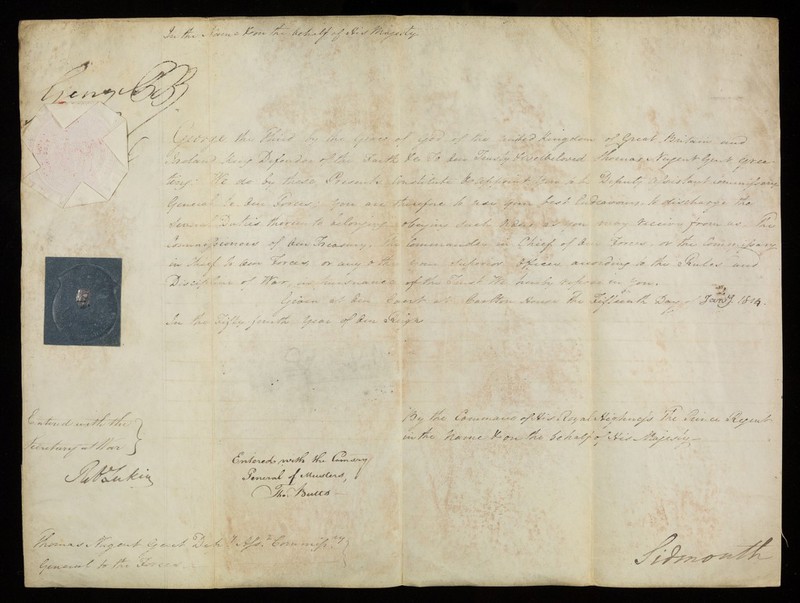 In the Name & on the behalf of His Majesty
George P R
George the Third by the Grace of God of the United Kingdom of Great Britain and
Ireland King Defender of the Faith &c To Our Trusty & Welbeloved Thomas Nugent Gent Gree-
ting: We do by these Presents Constitute & appoint you to be Deputy Assistant Commissary
General to Our Forces. You are therefore to use your best Endeavours to discharge the
several Duties thereunto belonging, obeying such Orders as you may receive from us The
Commissioners of Our Treasury, The Commander in Chief of Our Forces or the Commissary
in Chief to Our Forces or any other your Superior Officer according to the Rules and
Discipline of War, in pursuance of the Trust We hereby repose in you.
Given at Our Court at Carlton House the Fifteenth Day of Jany 1814
In the Fifty fourth Year of Our Reign
By the Command of His Royal Highness The Prince Regent
in the Name & on the behalf of His Majesty
Entered with the
Secretary at War
Robt Lukin
Entered with the Comissy
General of Musters,
Tho. Butts
Thomas Nugent Gent Dep. Asst Commissry
General to the Forces
Sidmouth